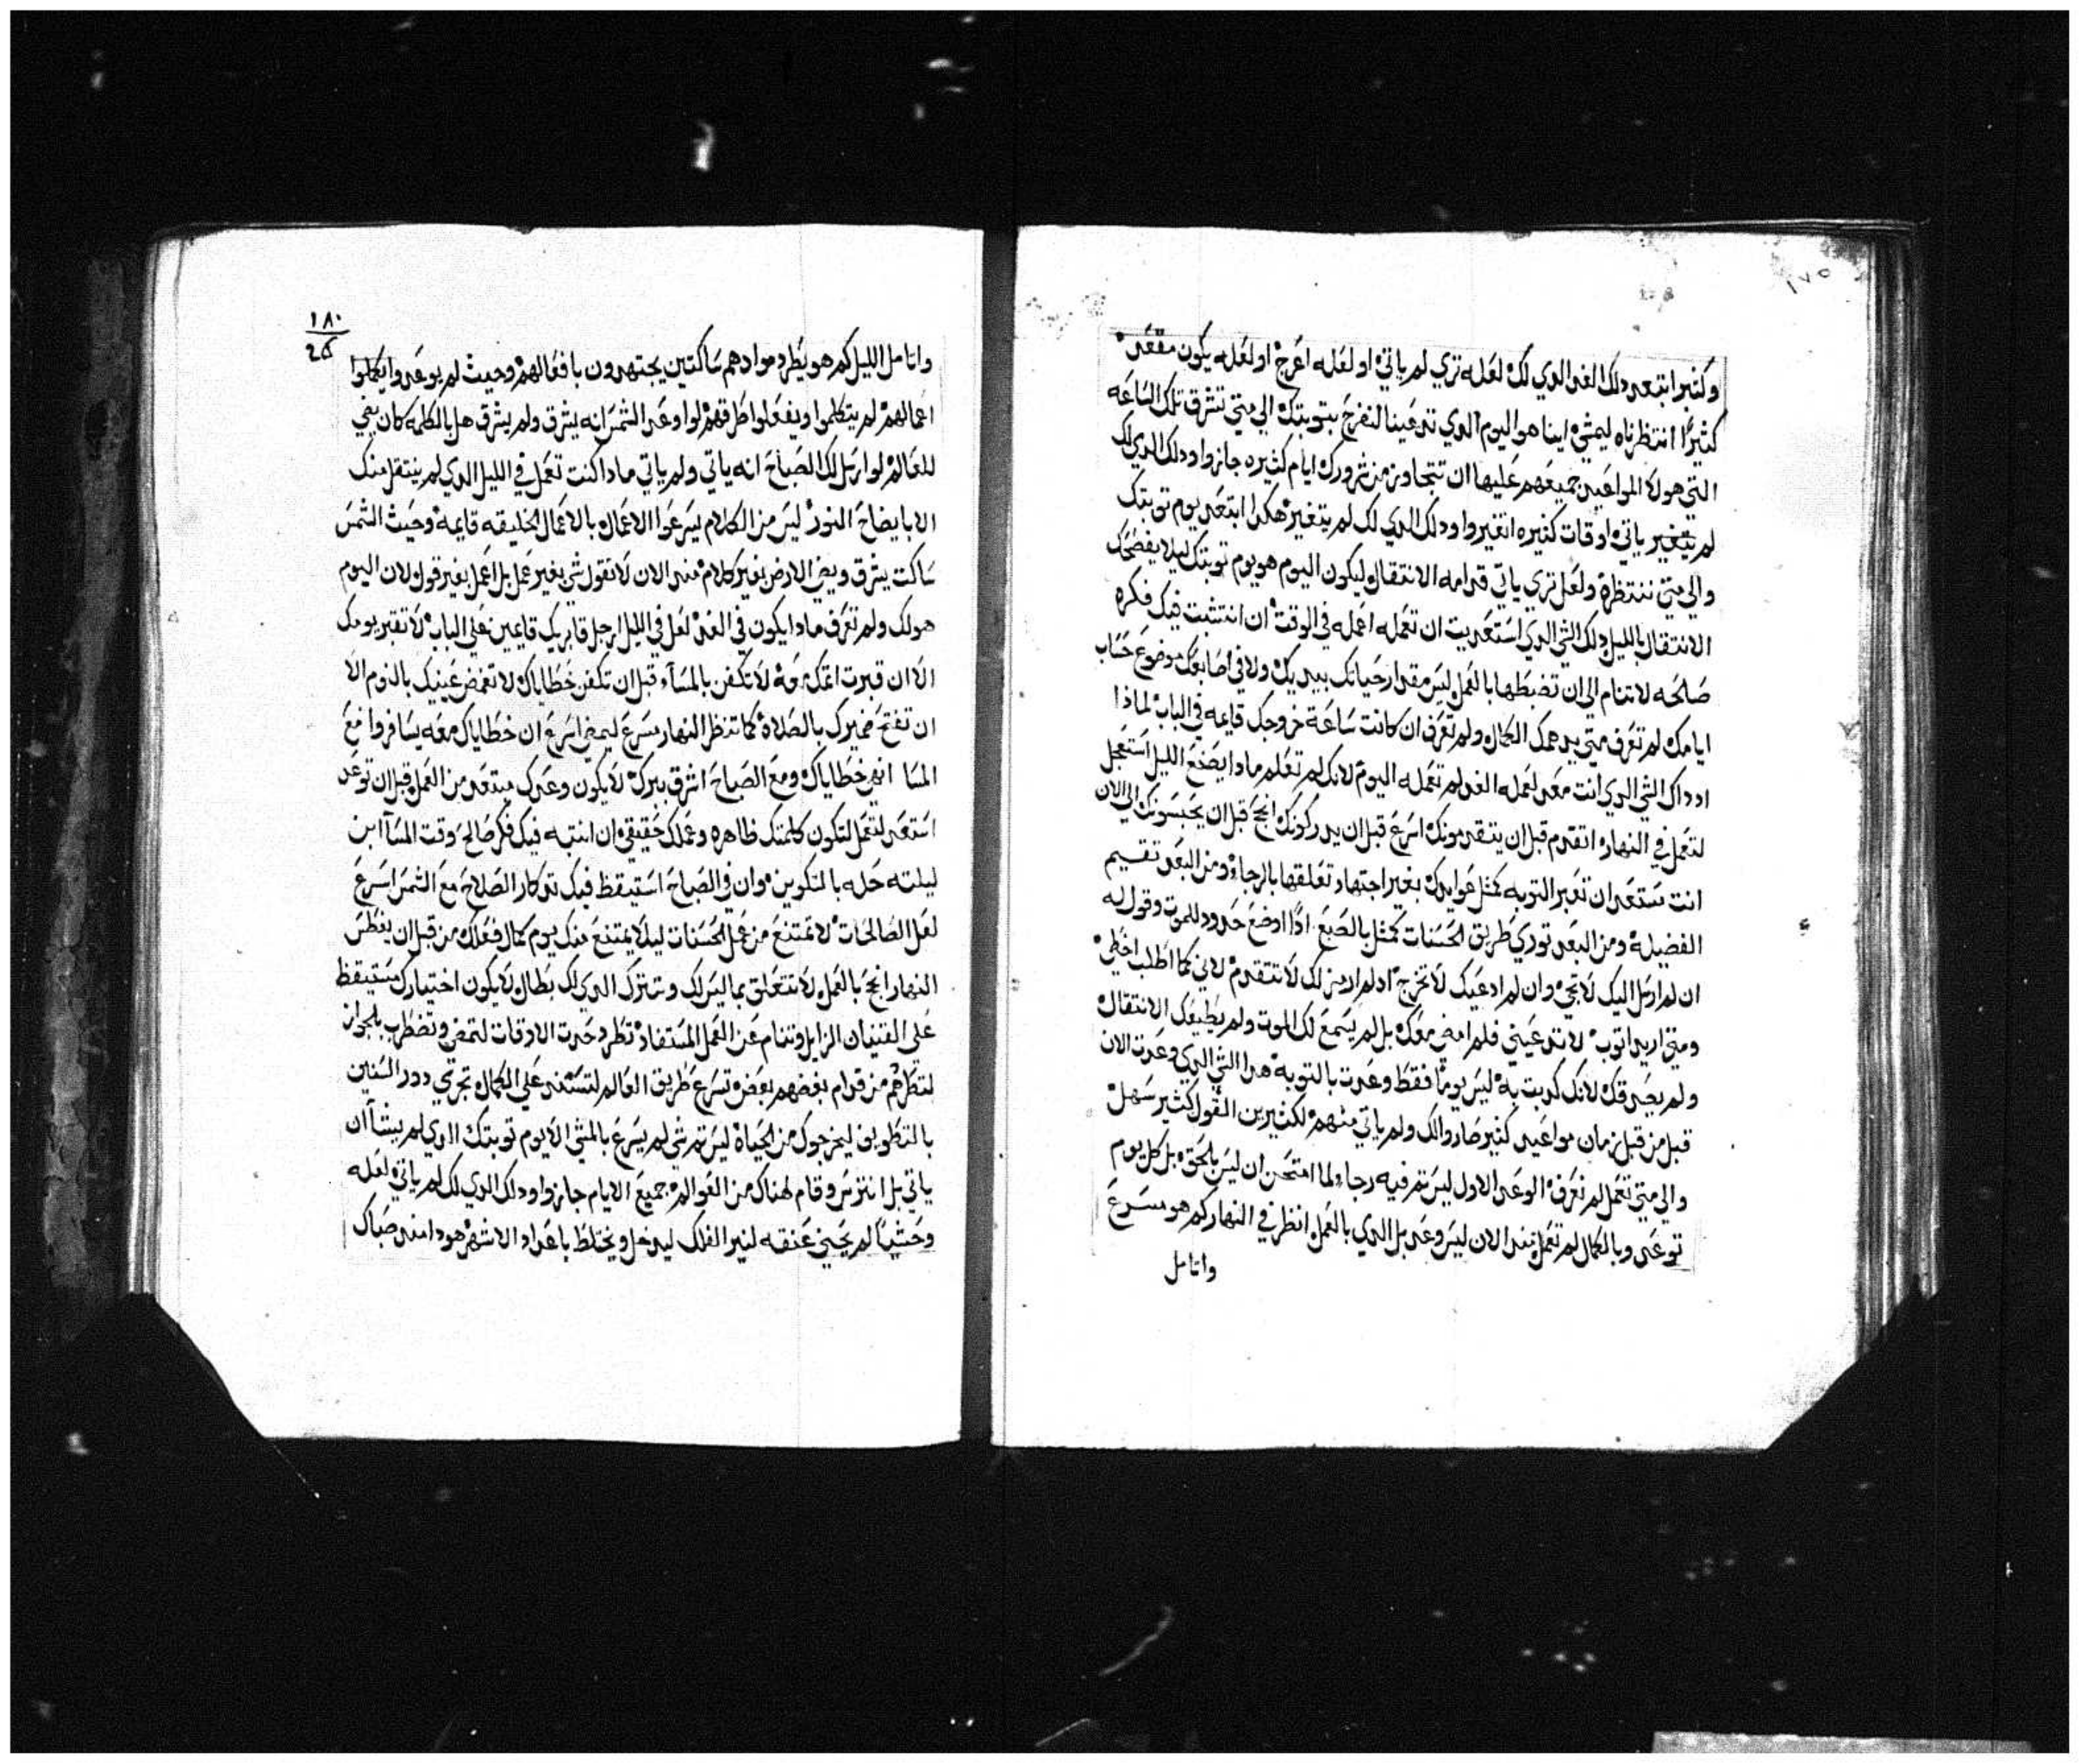 ١٧٥
وكثيرا ابتعد دلك الغد الدي لك لعله تري لم ياتي او لعله اعرج او لعله يكون مقعد
كثيرًا انتظرناه ليمشي اينا هو اليوم الدي تدعينا لنفرح بتوبتك الي متي تشرق تلك الساعه
التي هولا المواعيد جميعهم عليها ان تتجاوز من شرورك ايام كثيره جازوا ودلك الدي لك
لم يتغير ياتي اوقات كثيره اتغيروا ودلك الدي لك لم يتغير هكدا ابتعد يوم توبتك
والي متي ننتظره ولعل تري ياتي قدامه الانتقال ليكون اليوم هو يوم توبتك ليلا يفضحك
الانتقال بالليل دلك الشي الدي استعديت ان تعمله اعمله في الوقت ان انتشبت فيك فكره
صالحه لا تنام الي ان تضبطها بالعمل ليس مقدار حياتك بيديك ولا في اصابعك موضوع حساب
ايامك لم تعرف متي يدهمك الكمال ولم تعرف ان كانت ساعة خروجك قايمه في الباب لمادا
ادداك الشي الدي انت معد لعمله الغد لم تعمله اليوم لانك لم تعلم مادا يصنع الليل استعجل
لتعمل في النهار اتقدم قبل ان يتقدمونك اسرع قبل ان يدركونك انجح قبل ان يحبسونك الي الان
انت مستعد ان تعبر التوبه كمثل عوايدك بغير اجتهاد تعلقها بالرجاء ومن البعد تقسيم
الفضيله ومن البعد توري طريق الحسنات كمثل بالصبع ادًا اوضع حدود للموت وقول له
ان لم ارسل اليك لا تجي وان لم ادعيك لا تخرج اد لم ارمز لك لا تتقدم لاني كما اطلب اخطي
ومتي اريد اتوب لا تدعيني فلم امضي معك بل لم يسمع لك الموت ولم يطيعك الانتقال
ولم يصدقك لانك كدبت به ليس يومًا فقط وعدت بالتوبه هدا الشي الدي وعدت الان
قبل من قبل زمان مواعيد كثير صاروا لك ولم ياتي منهم لكثيرين القول كثير سهل
والي متي تعمل لم نعرف الوعد الاول ليس تم فيه رجا ولما امتحن ان ليس بالحق بل كل يوم
توعد وبالكمال لم تعمل مند الان ليس وعد بل الدي بالعمل انظر في النهار كم هو مسرع
واتامل
١٨٠
واتامل الليل كم هو يطرد موادهم ساكتين يجتهدون بافعالهم وحيث لم يوعدوا يكملوا
اعمالهم لم يتكلموا ويفعلوا طرقهم لو اوعد الشمس انه يشرق ولم يشرق هل بالكلمه كان يضي
للعالم لو ارسل لك الصباح انه ياتي ولم ياتي مادا كنت تعمل في الليل الدي لم ينتقل منك
الا بايضاح النور ليس من الكلام يسرعوا الاعمال بالاعمال الخليقه قايمه وحيث الشمس
ساكت يشرق ويضي الارض بغير كلام مند الان لا تقول شي بغير عمل بل اعمل بغير قول لان اليوم
هو لك ولم تعرف مادا يكون في الغد لعل في الليل ارجل قابريك قايمين علي الباب لا تقبر يومك
الا ان قبرت اتمك لا تكفن بالمساء قبل ان تكفن خطاياك لا تغمض عينيك بالنوم الا
ان تفتح ضميرك بالصلاة كما تنظر النهار مسرع ليمضي اسرع ان خطاياك معه يسافروا مع
المسا انهي خطاياك ومع الصباح اشرق ببرك لا يكون وعدك مبتعد من العمل قبل ان توعد
استعد لتعمل لتكون كلمتك ظاهره وعملك حقيقي ان انتبه فيك فكر صالح وقت المساآ ابن
ليلته حله بالتكوين وان في الصباح استيقظ فيك تدكار الصلاح مع الشمس اسرع
لعمل الصالحات لا تمتنع من عمل الحسنات ليلا يمتنع منك يوم كمال فعلك من قبل ان يغطس
النهار انجح بالعمل لا تتعلق بما ليس لك وتترك الدي لك بطال لا يكون اختيارك مستيقظ
علي القنيان الزايل وتنام عن العمل المستفاد تطرد حدت الاوقات لتمضي وتضطرب بالجواز
لتطردهم من قدام بعضهم بعض تسرع طريق العالم لتستند علي الكمال تجري دور السنين
بالتطويف ليخرجوك من الحياة ليس تم شي لم يسرع بالمشي الا يوم توبتك الدي لم يشاآ ان
ياتي بل انترس وقام هناك من العوالم جميع الايام جازوا ودلك الدي لك لم ياتي لعله
وحشيًا لم يحني عنقه لنير الفلك ليدخل ويختلط باعداد الاشهر هودا مند صباك